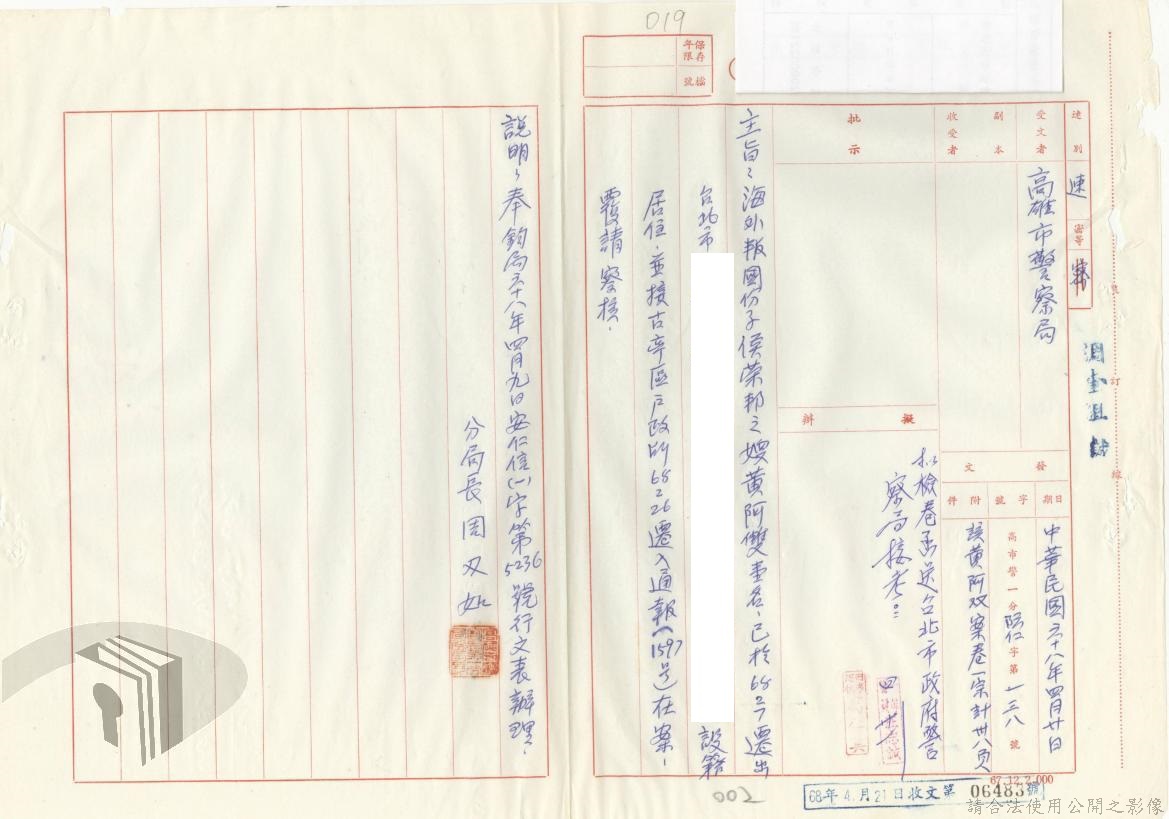 019
保存年限
檔號
速別
速
密等
受文者
高雄市警察局
副本收受者
發文
日期
中華民國六十八年四月廿日
字號
高市警一分防仁字第一三八號
附件
該黃阿双案卷一宗計卅八頁
批示
擬辦
擬檢卷函送台北市政府警
察局接考。
主旨:海外叛國份子侯榮邦之嫂黃阿雙壹名,已於68.2.7遷出
台北市
設籍
居住,並接古亭區戶政所68.2.26遷入通報(1597号)在案,
覆請 察核。
說明:奉鈞局六十八年四月九日安仁信(一)字第5236號行文表辦理。
分局長周又
訂
線
67.12.2,000
68年4月21日收文第06483號
002
請合法使用公開之影像